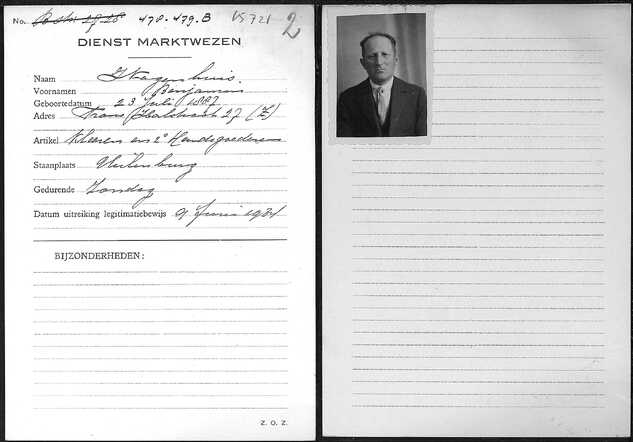 No. 478-479.B VS 721 2
DIENST MARKTWEZEN
Naam Wagenhuis
Voornamen Benjamin
Geboortedatum 23 Juli 1887
Adres Frans Halsstraat 27 (Z)
Artikel Kleeren en 2e Handsgoederen
Staanplaats Uilenburg
Gedurende Zondag
Datum uitreiking legitimatiebewijs 9 Juni 1931
BIJZONDERHEDEN:
Z. O. Z.